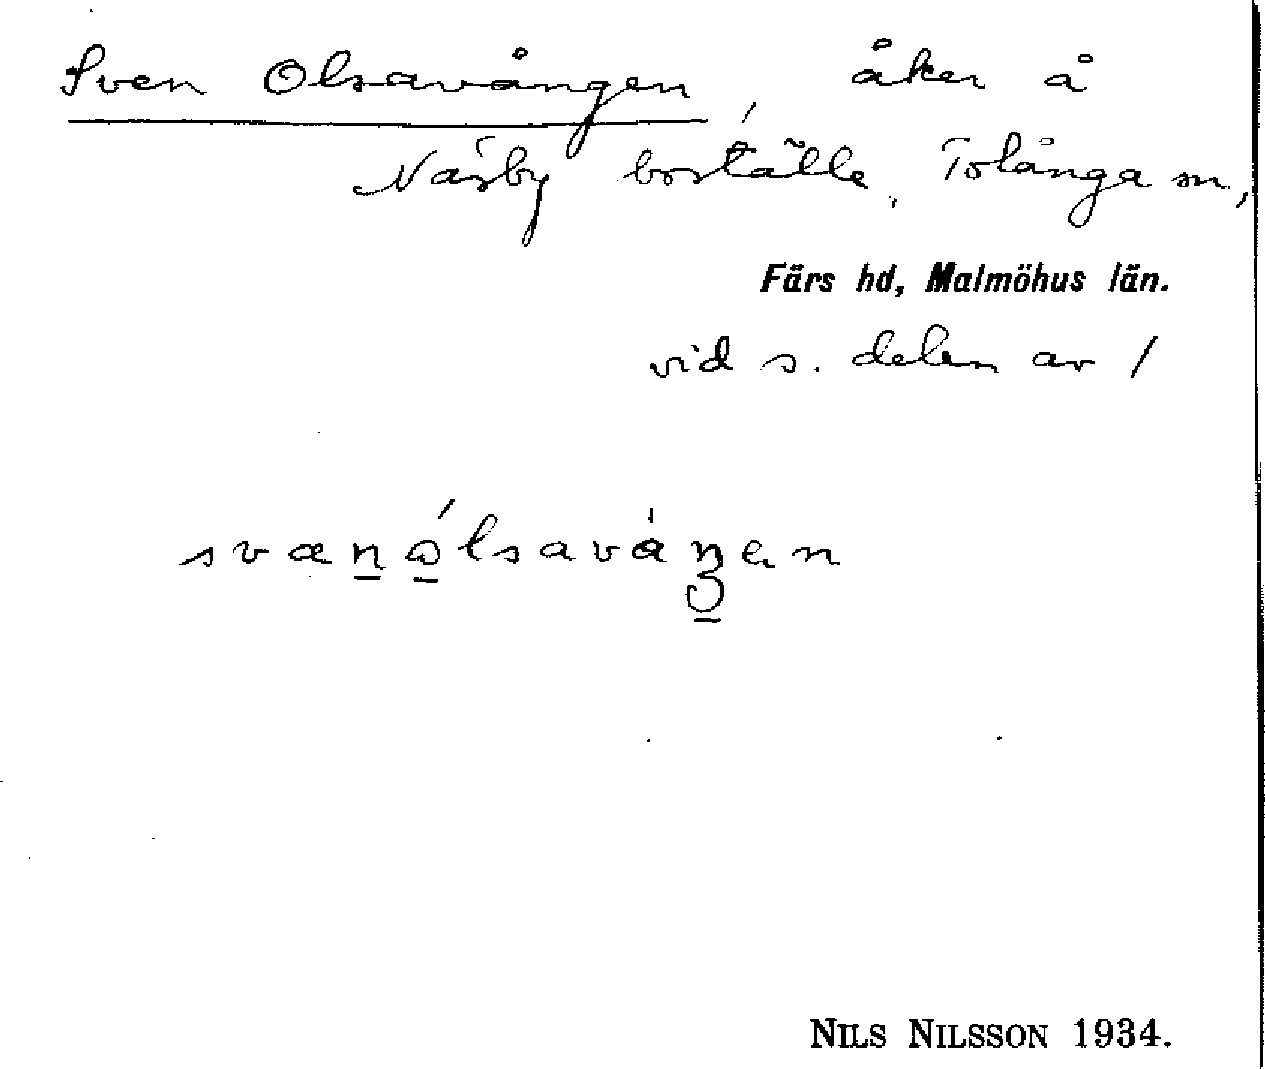 Sven Olsavången, åker å
Näsby boställe, Tolånga sn,
Färs hd, Malmöhus län.
vid s. delen av /
svænólsaváŋen
NILS NILSSON 1934.